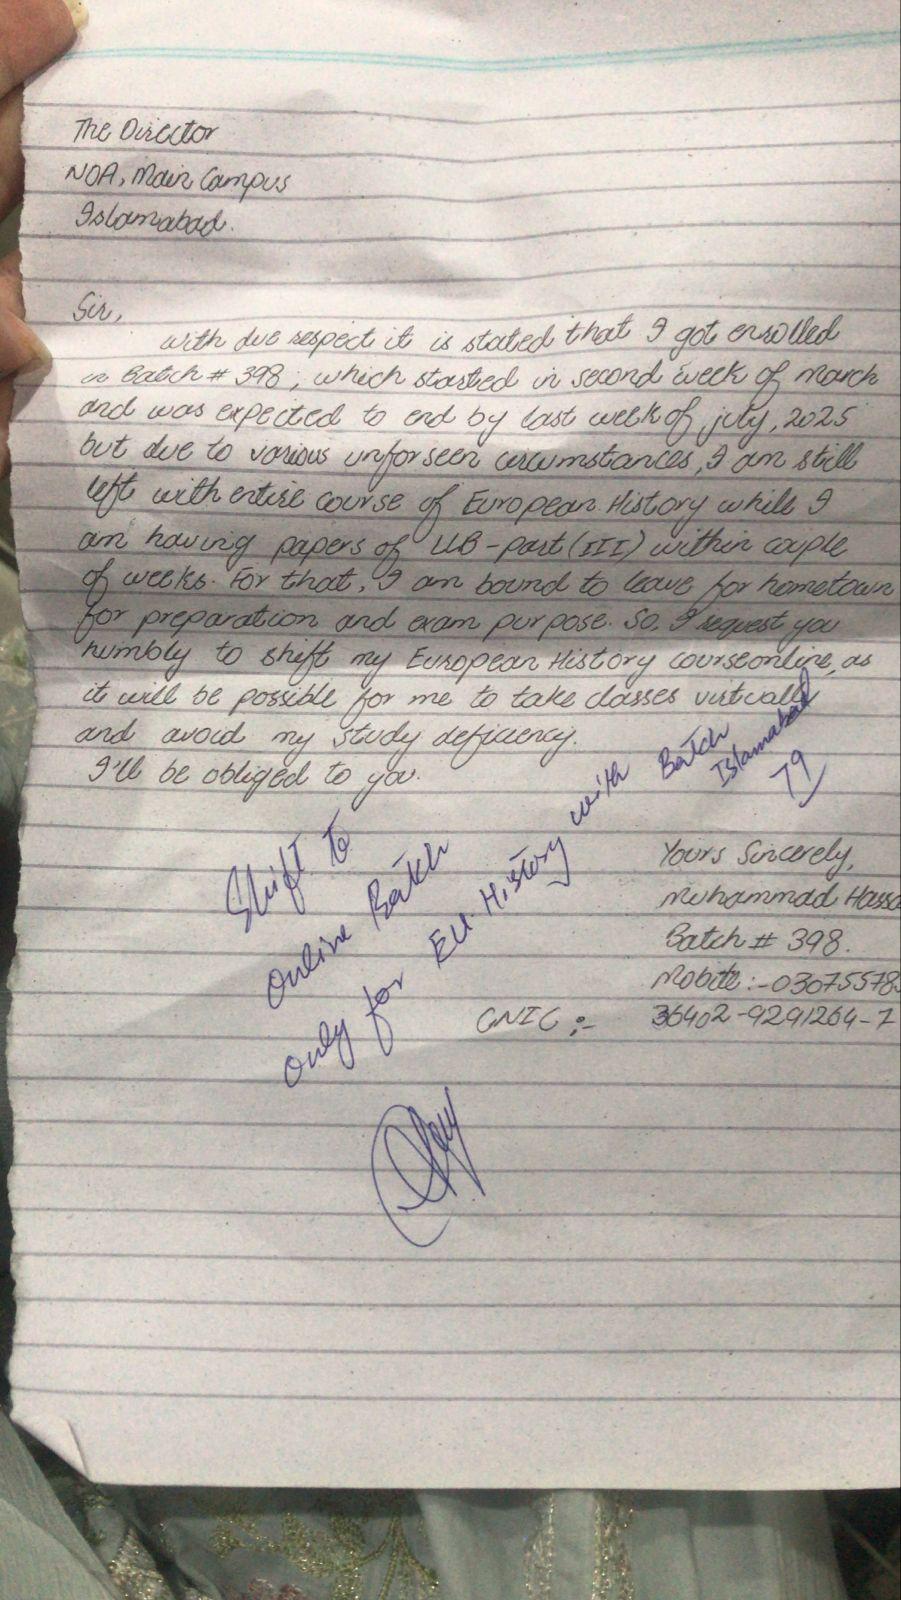 The Director
NOA, Main Campus
Islamabad.
Sir,
with due respect it is stated that I got enrolled
in Batch # 398, which started in second week of march
and was expected to end by last week of july, 2025
but due to various unforseen circumstances, I am still
left with entire course of European History while I
am having papers of LLB-part (III) within couple
of weeks. For that, I am bound to leave for hometown
for preparation and exam purpose. So, I request you
humbly to shift my European History course online, as
it will be possible for me to take classes virtually
and avoid my study deficiency.
I'll be obliged to you.
Shift to
Online Batch
only for EU. History with Batch
Islamabad
79
Yours Sincerely,
Muhammad Hassa
Batch # 398.
Mobile:-03075578
CNIC :- 36402-9291264-7